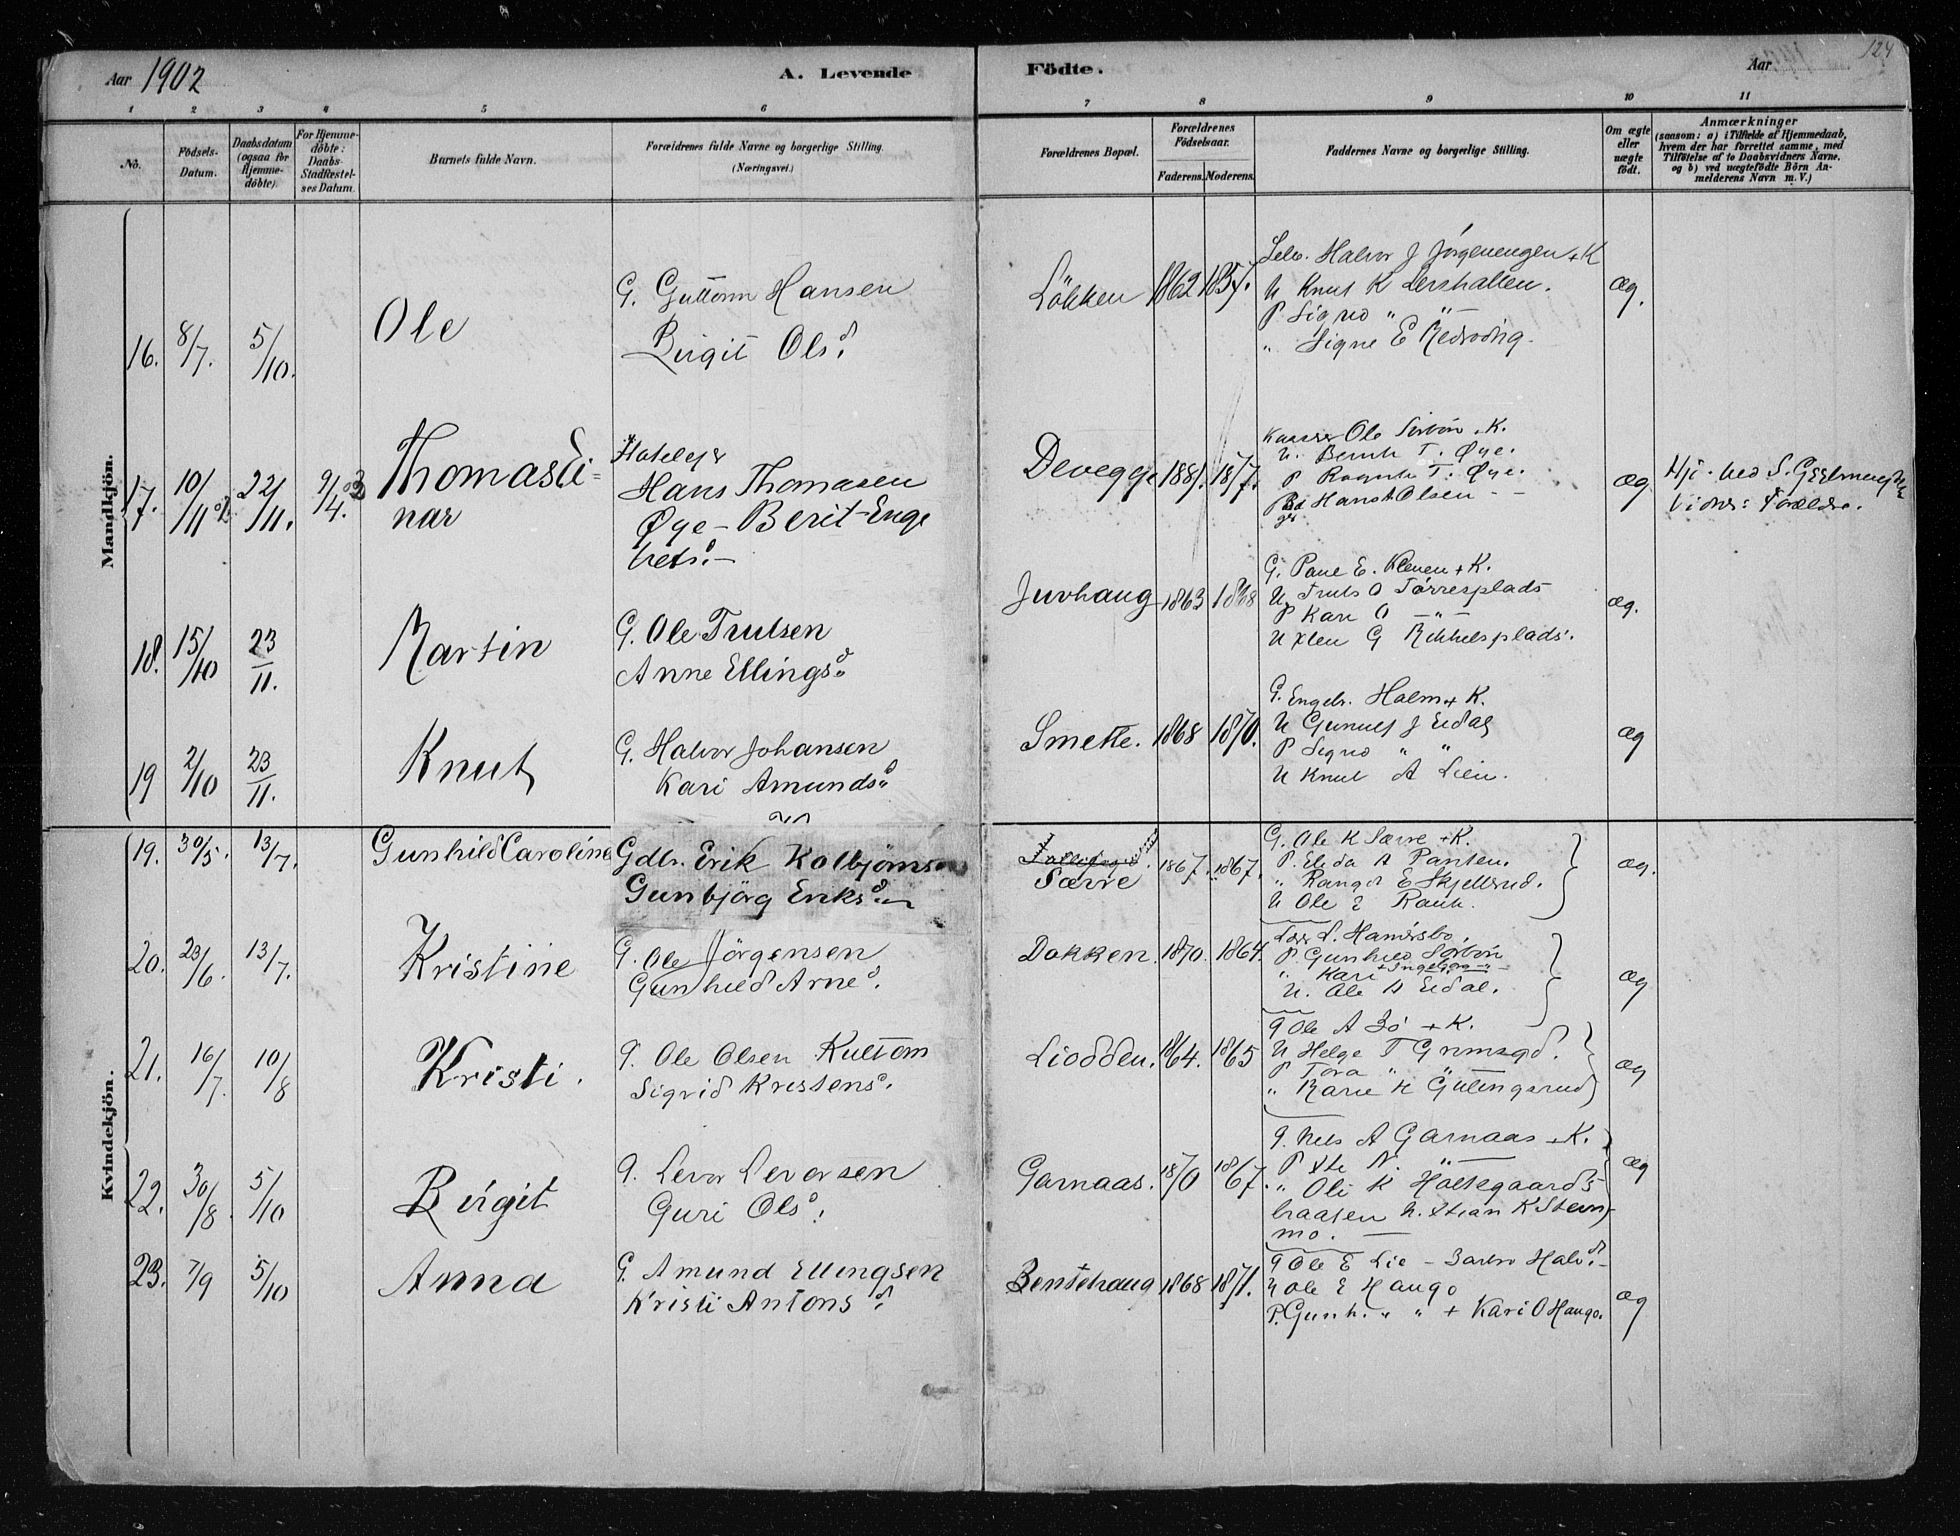 Aar 1902
A. Levende
Födte.
Aar
124
1 2 3 4 5 6 7 8 9 10 11
No.
Födsels-Datum.
Daabsdatum (ogsaa for Hjemme-döbte).
For Hjemme-döbte: Daabs-Stadfæstel-ses Datum.
Barnets fulde Navn.
Forældrenes fulde Navne og borgerlige Stilling.
(Næringsvei.)
Forældrenes Bopæl.
Forældrenes Födselsaar.
Faderens. Moderens.
Faddernes Navne og borgerlige Stilling.
Om ægte eller uægte födt.
Anmærkninger
(saasom: a) i Tilfælde af Hjemmedaab,
hvem der har forrettet samme, med
Tilföielse af to Daabsvidners Navne,
og b) ved uægtefödte Börn An-
melderens Navn m. V.)
Mandkjön.
16. 8/7. 5/10. Ole
G. Guttorm Hansen
Birgit Olsd.
Lökken 1862 1857.
Selv. Halvor J Jörgenengen + K
U Knut K
P Sigrid " "
" Signe E
æg.
17. 10/11 02 22/11. 9/4. 03 Thomas Ei-
nar
Hotelejer
Hans Thomasen
Øye - Berit Enge
bretsd. -
Devegge 1881. 1877.
Ole Sorbön + K.
U. Bernh T. Øye.
P Ragnh T. Øye.
Hans Olsen - -
æg
Hj. ved S.
Vidner: Forældre.
18. 15/10 23/11. Martin
G. Ole Trulsen
Anne Ellingsd.
Juvhaug 1863 1868
G. Paul E. Kleven + K.
U. Truls O Tørresplads
P Kari O - " -
U Xlen G Rikkelsplads.
æg.
19 2/10 23/11. Knut
G. Halvor Johansen
Kari Amundsd.
Smette. 1868 1870.
G. Engebr. Halm + K.
U Gunnulf J Eidal
P Sigrid " "
U Knut A Lien.
æg
Kvindekjön.
19. 30/5. 13/7. Gunhild Caroline
Gdbr. Erik Kolbjörnsen
Gunbjörg Eriksd.
Særre 1867. 1867.
G. Ole K Særre + K.
P. Elida A Pansen.
" Rangd E Skjellerud.
U Ole E Rauk.
æg.
20. 23/6. 13/7. Kristine
G. Ole Jörgensen
Gunhild Arnesd.
Dokken. 1870. 1864.
Lærer S. Hamersbo.
P Gunhild Sorbön
" Kari + Ingeborg - " -
U. Ole A Eidal.
æg
21. 16/7. 10/8 Kristi.
G. Ole Olsen Kultom
Sigrid Kristensd.
Liodden. 1864. 1865
G Ole A Bö + K.
U Helge T Grimsgd.
P Tora " "
" Marie K Gulingsrud
æg
22. 30/8. 5/10 Birgit
G. Levor Levorsen
Guri Olsd.
Garnaas. 1870 1867.
G. Nels A Garnaas + K.
P Xte N. "
" Oli K Holtegaards-
braaten U. Xtian K Stein-
mo.
æg
23. 7/9 5/10 Anna
G. Amund Ellingsen
Kristi Antonsd.
Bentehaug 1868 1871.
G Ole E Lie - Barbro Halvd. -
U Ole E Haugo
P. Gunh. " " + Kari O Haugo.
æg